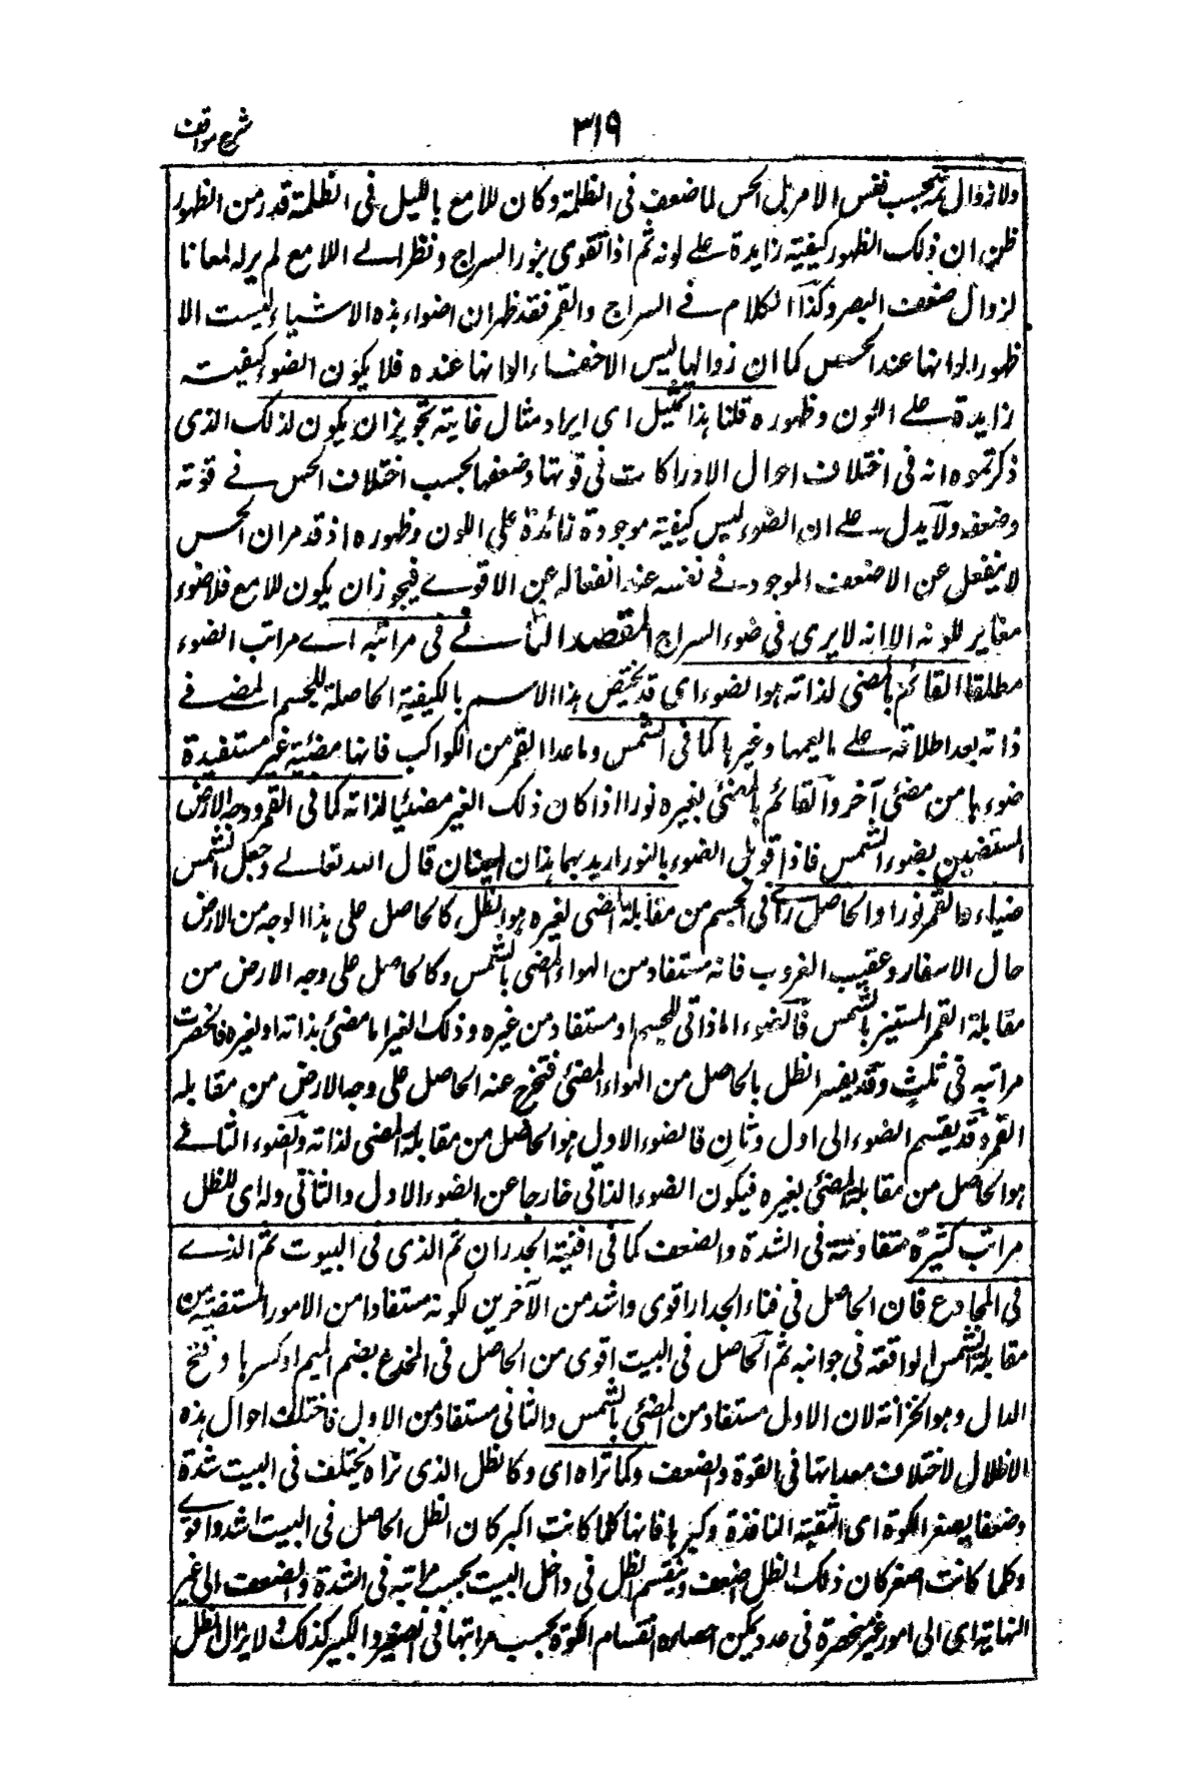 شرح مواقف
٣١٩
ولا زوال ثمه بحسب نفس الامر بل الحس لما ضعف فى الظلمة وكان للامع بالليل فى الظلمة قدر من الظهور
ظن ان ذلك الظهور كيفية زايدة على لونه ثم اذا تقوى بنور السراج ونظر الى اللامع لم ير له لمعانا
لزوال ضعف البصر وكذا الكلام فى السراج والقمر فقد ظهر ان اضواء هذه الاشياء ليست الا
ظهور الوانها عند الحس كما ان زوالها ليس الا خفاء الوانها عنده فلا يكون الضوء كيفية
زايدة على اللون وظهوره قلنا هذا تمثيل اى ايراد مثال غايته تجويز ان يكون لذلك الذى
ذكرتموه انه فى اختلاف احوال الادراكات فى قوتها وضعفها بحسب اختلاف الحس فى قوته
وضعفه ولا يدل على ان الضوء ليس كيفية موجودة زائدة على اللون وظهوره اذ قد مر ان الحس
لا ينفعل عن الاضعف الموجود فى نفسه عند انفعاله عن الاقوى فيجوز ان يكون للامع فلا ضوء
مغاير للونه الا انه لا يرى فى ضوء السراج المقصد الثانى فى مراتبه اى مراتب الضوء
مطلقا القائم بالمضى لذاته هو الضوء اى قد يختص هذا الاسم بالكيفية الحاصلة للجسم المضى فى
ذاته بعد اطلاقه على ما يعمها وغيرها كما فى الشمس وما عدا القمر من الكواكب فانها مضئية غير مستفيدة
ضوءها من مضئى آخر والقائم بالمضئى بغيره نور اذا كان ذلك الغير مضئيا لذاته كما فى القمر ووجه الارض
المستضيين بضوء الشمس فاذا قوبل الضوء بالنور اريد بهما هذان المعنيان قال الله تعالى وجعل الشمس
ضياء والقمر نورا والحاصل فى الجسم من مقابلة المضى لغيره هو الظل كالحاصل على هذا الوجه من الارض
حال الاسفار وعقيب الغروب فانه مستفاد من الهواء المضى بالشمس وكالحاصل على وجه الارض من
مقابلة القمر المستنير بالشمس فالضوء اما ذاتى للجسم او مستفاد من غيره وذلك الغير اما مضئى بذاته او لغيره فانحصرت
مراتبه فى ثلث وقد يفسر الظل بالحاصل من الهواء المضئى فتخرج عنه الحاصل على وجه الارض من مقابلة
القمر وقد يقسم الضوء الى اول وثان فالضوء الاول هو الحاصل من مقابلة المضى لذاته والضوء الثانى
هو الحاصل من مقابلة المضئى بغيره فيكون الضوء الذاتى خارجا عن الضوء الاول والثانى وله اى للظل
مراتب كثيرة متفاوتة فى الشدة والضعف كما فى افنية الجدران ثم الذى فى البيوت ثم الذى
فى المخادع فان الحاصل فى فناء الجدار اقوى واشد من الآخرين لكونه مستفادا من الامور المستضيئة من
مقابلة الشمس الواقعة فى جوانبه ثم الحاصل فى البيت اقوى من الحاصل فى المخدع بضم الميم او كسرها وفتح
الدال وهو الخزانة لان الاول مستفاد من المضئى بالشمس والثانى مستفاد من الاول فاختلفت احوال هذه
الاظلال لاختلاف معداتها فى القوة والضعف وكما تراه اى وكالظل الذى تراه يختلف فى البيت شدة
وضعفا بصغر الكوة اى الثقبة النافذة وكبرها فانها كلما كانت اكبر كان الظل الحاصل فى البيت اشد واقوى
وكلما كانت اصغر كان ذلك الظل اضعف وينقسم الظل فى داخل البيت بحسب مراتبه فى الشدة والضعف الى غير
النهاية اى الى امور غير منحصرة فى عدد يمكن احصاءه انقسام الكوة بحسب مراتبها فى الصغر والكبر كذلك ولا يزال الظل